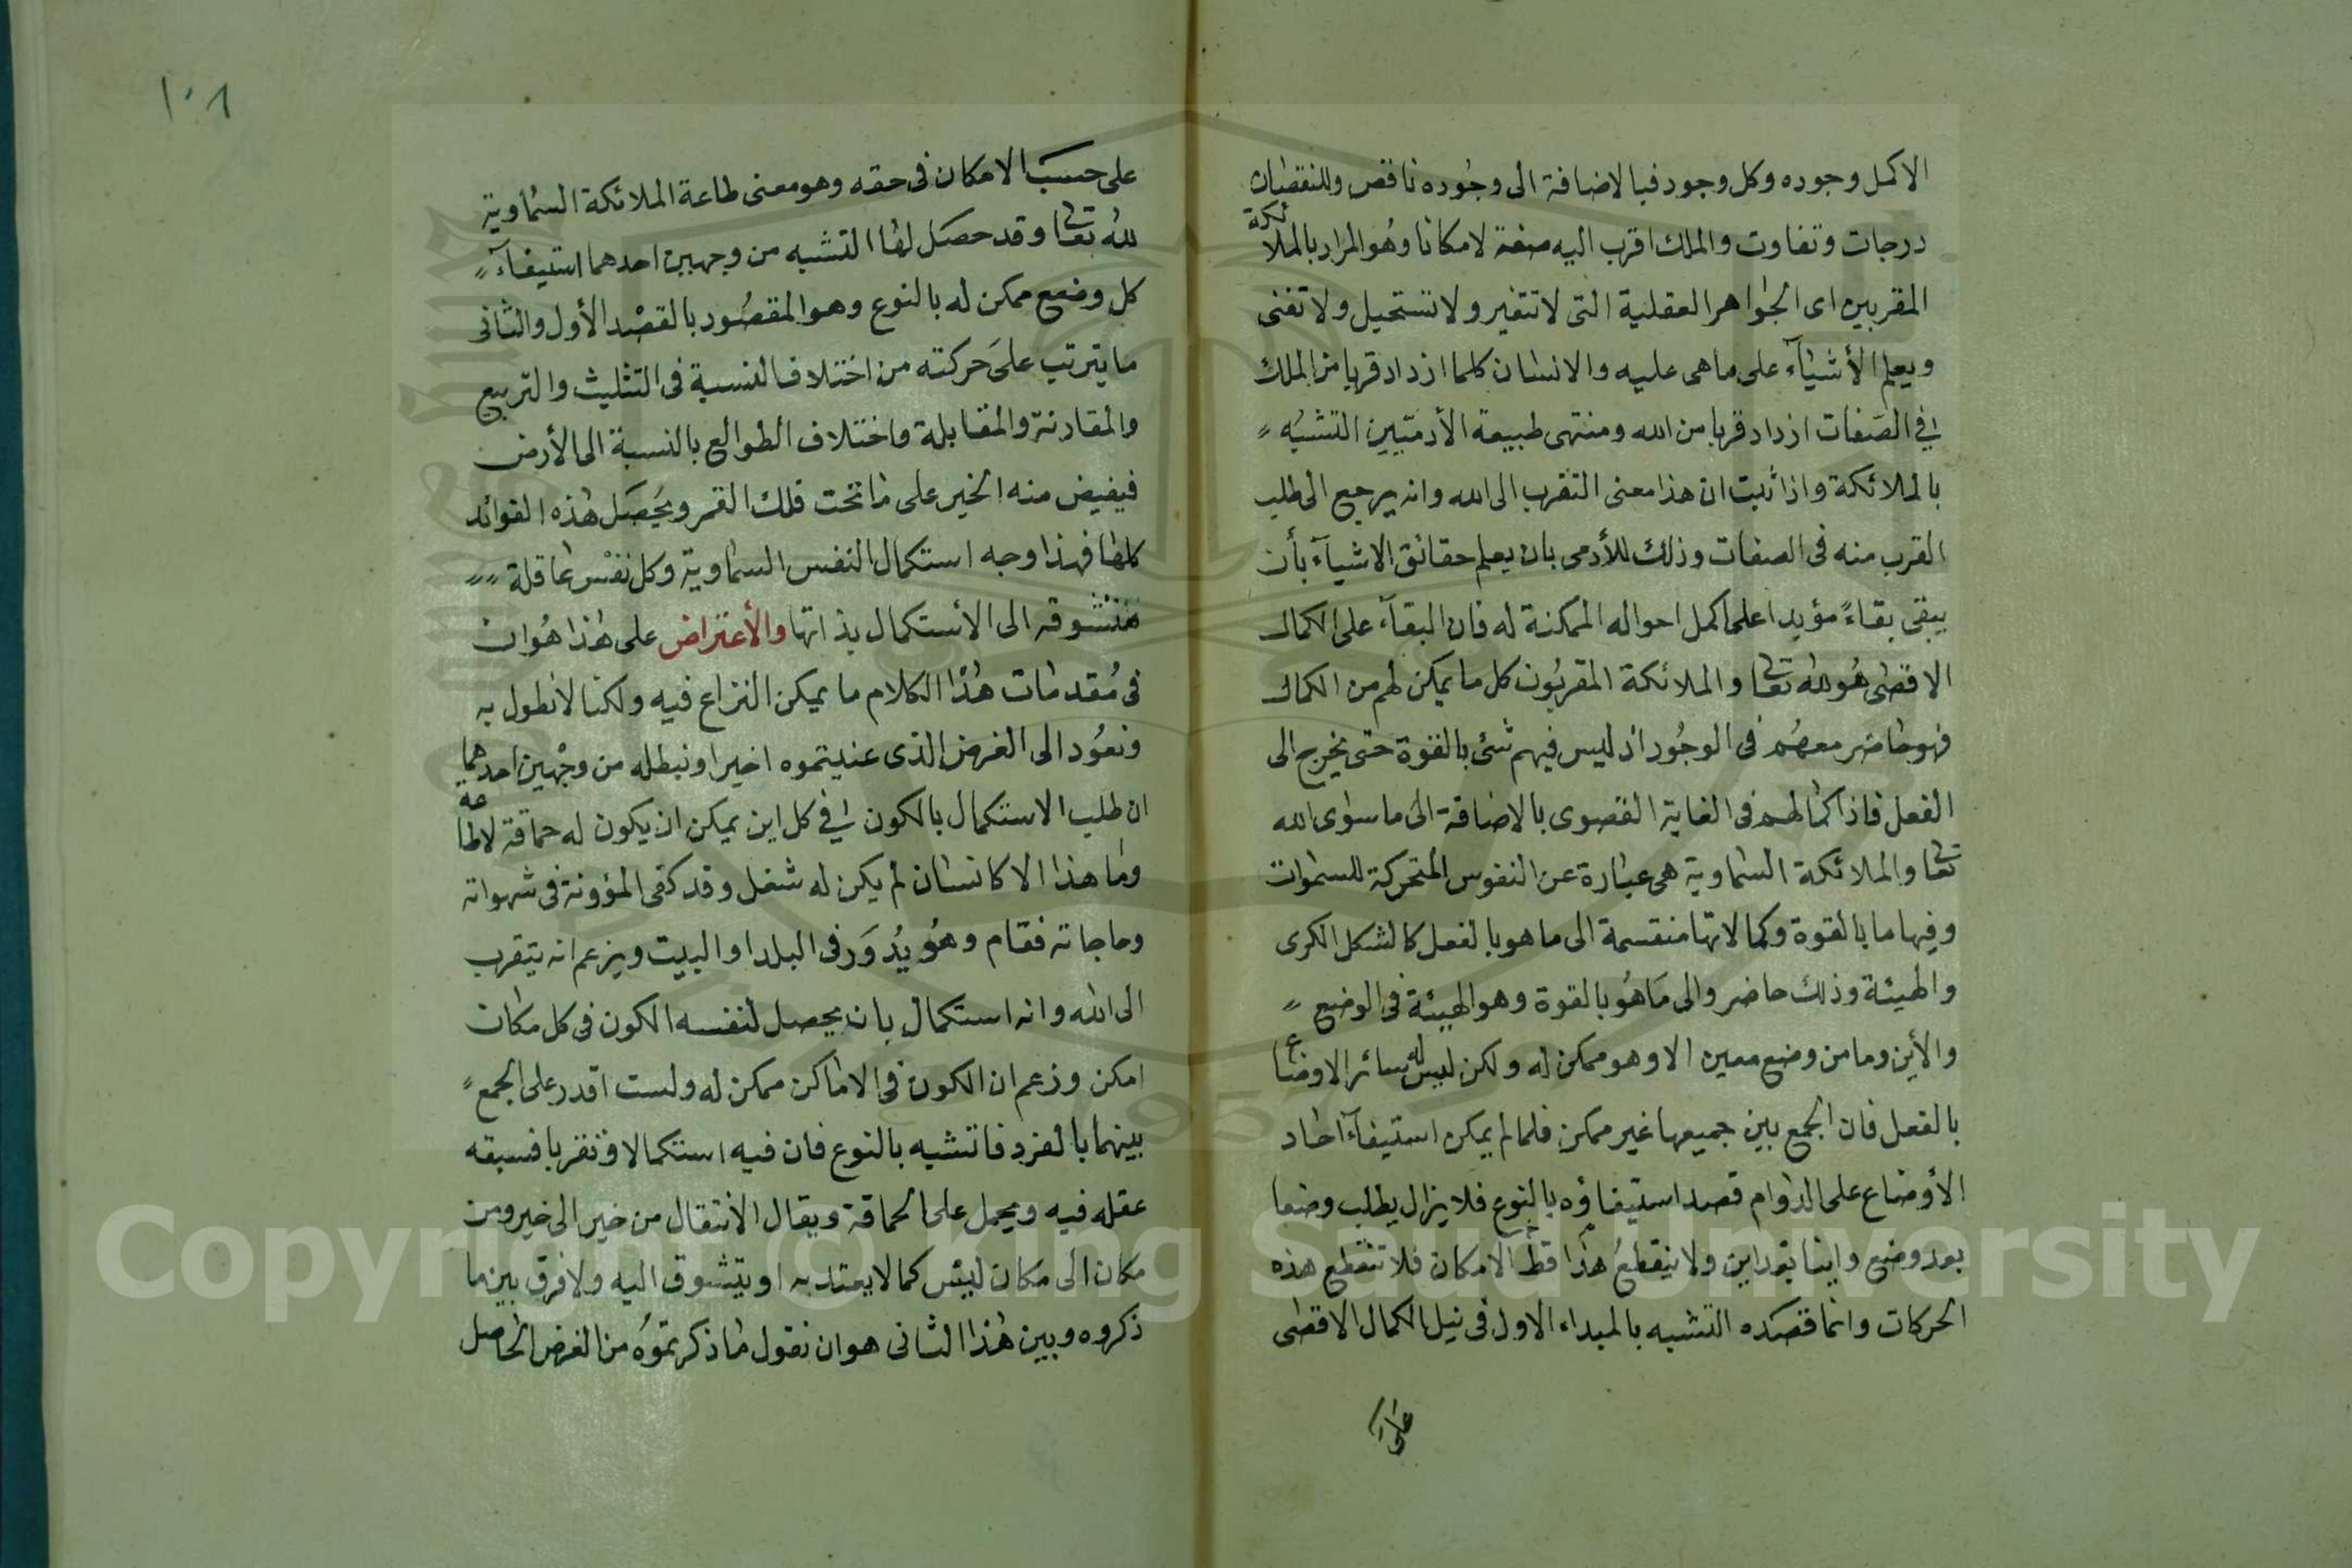 الاكمل وجوده وكل وجود فبالاضافة الى وجوده ناقص وللنقصان
درجات وتفاوت والملك اقرب اليه صفة لامكانا وهو المراد بالملائكة
المقربين اى الجواهر العقلية التى لا تتغير ولا تستحيل ولا تفنى
ويعلم الأشيآء على ما هى عليه والانسان كلما ازداد قربا من الملك
فى الصفات ازداد قربا من الله ومنتهى طبيعة الأدميّين التشبه
بالملائكة واذا ثبت ان هذا معنى التقرب الى الله وانه يرجع الى طلب
القرب منه فى الصفات وذلك للأدمى بان يعلم حقائق الاشيآء بأن
يبقى بقاءً مؤبدا على اكمل احواله الممكنة له فان البقآء على الكمال
الاقصى هو لله تعالى والملائكة المقربون كل ما يمكن لهم من الكمال
فهو حاضر معهم فى الوجود اذ ليس فيهم شئ بالقوة حتى يخرج الى
الفعل فاذا كمالهم فى الغاية القصوى بالاضافة الى ما سوى الله
تعالى والملائكة السماوية هى عبارة عن النفوس المتحركة للسموات
وفيها ما بالقوة وكمالاتها منقسمة الى ما هو بالفعل كالشكل الكرى
والهيئة وذلك حاضر والى ما هو بالقوة وهو الهيئة فى الوضع
والأين وما من وضع معين الا وهو ممكن له ولكن ليس له سائر الاوضاع
بالفعل فان الجمع بين جميعها غير ممكن فلما لم يمكن استيفآء احاد
الأوضاع على الدوام قصد استيفاؤه بالنوع فلا يزال يطلب وضعا
بعد وضع واينا بعد اين ولا ينقطع هذا قط الامكان فلا تنقطع هذه
الحركات وانما قصده التشبه بالمبداء الاول فى نيل الكمال الاقصى
على
١٠٨
على حسب الامكان فى حقه وهو معنى طاعة الملائكة السماوية
لله تعالى وقد حصل لها التشبه من وجهين احدهما استيفآء
كل وضع ممكن له بالنوع وهو المقصود بالقصد الأول والثانى
ما يترتب على حركته من اختلاف النسبة فى التثليث والتربيع
والمقارنة والمقابلة واختلاف الطوالع بالنسبة الى الأرض
فيفيض منه الخير على ما تحت فلك القمر ويحصل هذه الفوائد
كلها فهذا وجه استكمال النفس السماوية وكل نفس عاقلة
متشوقه الى الأستكمال بذاتها والأعتراض على هذا هو ان
فى مقدمات هذا الكلام ما يمكن النزاع فيه ولكنا لانطول به
ونعود الى الغرض الذى عنيتموه اخيرا ونبطله من وجهين احدهما
ان طلب الاستكمال بالكون فى كل اين يمكن ان يكون له حماقة لاطاعة
وما هذا الا كانسان لم يكن له شغل وقد كفى المؤونة فى شهواته
وحاجاته فقام وهو يدور فى البلد او البيت ويزعم انه يتقرب
الى الله وانه استكمال بان يحصل لنفسه الكون فى كل مكان
امكن وزعم ان الكون فى الاماكن ممكن له ولست اقدر على الجمع
بينهما بالفرد فاتشبه بالنوع فان فيه استكمالا وتقربا فسبقه
عقله فيه ويحمل على الحماقة ويقال الانتقال من خير الى خير ومن
مكان الى مكان ليس كما لا يعتد به او يتشوق اليه ولا فرق بين ما
ذكروه وبين هذا الثانى هو ان نقول ما ذكرتموه من الغرض الحاصل
Copyright © King Saud University